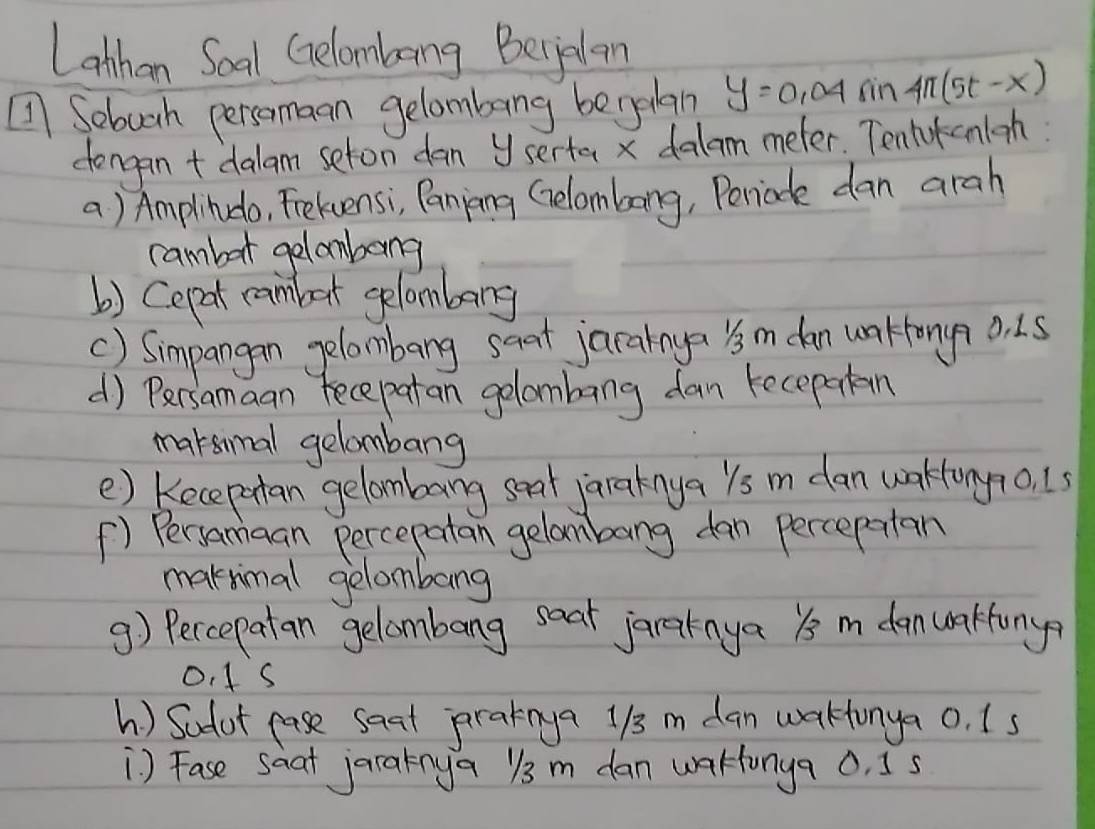 Latihan Soal Gelombang Berjalan
1 Sebuah persamaan gelombang berjalan y = 0,04 sin 4π(5t - x)
dengan t dalam sekon dan y serta x dalam meter. Tentukanlah :
a.) Amplitudo, Frekuensi, Panjang Gelombang, Periode dan arah
rambat gelombang
b.) Cepat rambat gelombang
c.) Simpangan gelombang saat jaraknya 1/3 m dan waktunya 0,1 s
d.) Persamaan kecepatan gelombang dan kecepatan
maksimal gelombang
e.) Kecepatan gelombang saat jaraknya 1/3 m dan waktunya 0,1 s
f.) Persamaan percepatan gelombang dan percepatan
maksimal gelombang
g.) Percepatan gelombang saat jaraknya 1/3 m dan waktunya
0,1 s
h.) Sudut fase saat jaraknya 1/3 m dan waktunya 0,1 s
i.) Fase saat jaraknya 1/3 m dan waktunya 0,1 s